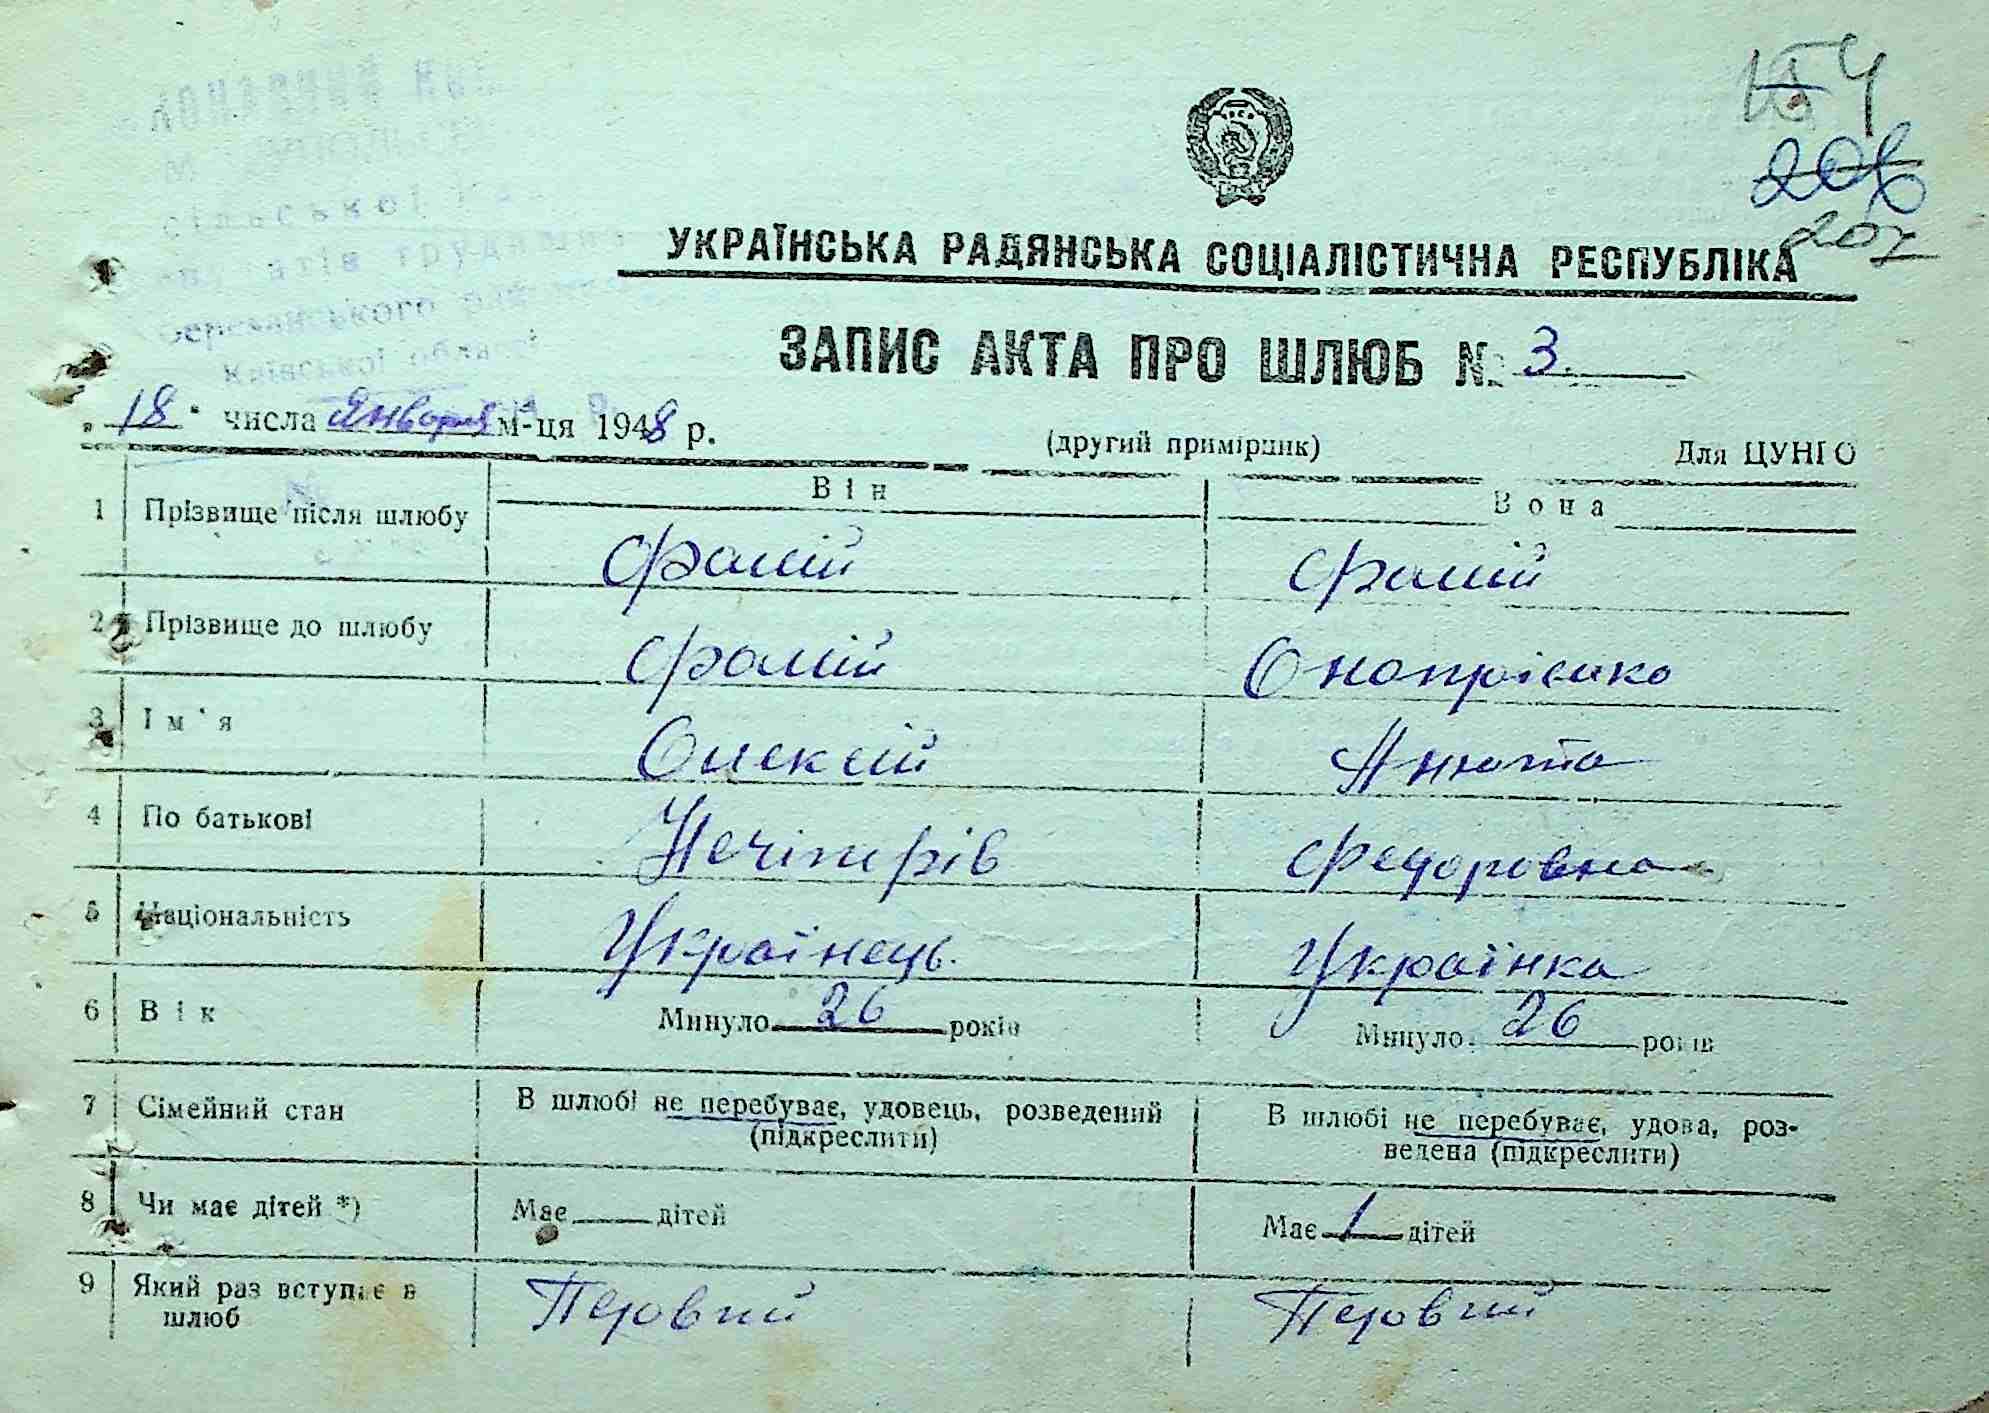 207
УКРАЇНСЬКА РАДЯНСЬКА СОЦІАЛІСТИЧНА РЕСПУБЛІКА
ЗАПИС АКТА ПРО ШЛЮБ № 3
сільської
Березанського
Київської області
„18“ числа Января м-ця 1948 р.
(другий примірник) Для ЦУНГО
Він Вона
1 Прізвище після шлюбу Фалій Фалій
2 Прізвище до шлюбу Фалій Онопрієнко
3 Ім'я Олексій Анюта
4 По батькові Нечіпорів Федоровна
5 Національність Українець. Українка
6 Вік Минуло 26 років Минуло 26 років
7 Сімейний стан В шлюбі не перебуває, удовець, розведений (підкреслити) В шлюбі не перебуває, удова, розведена (підкреслити)
8 Чи має дітей *) Має — дітей Має 1 дітей
9 Який раз вступає в шлюб Первий Первий